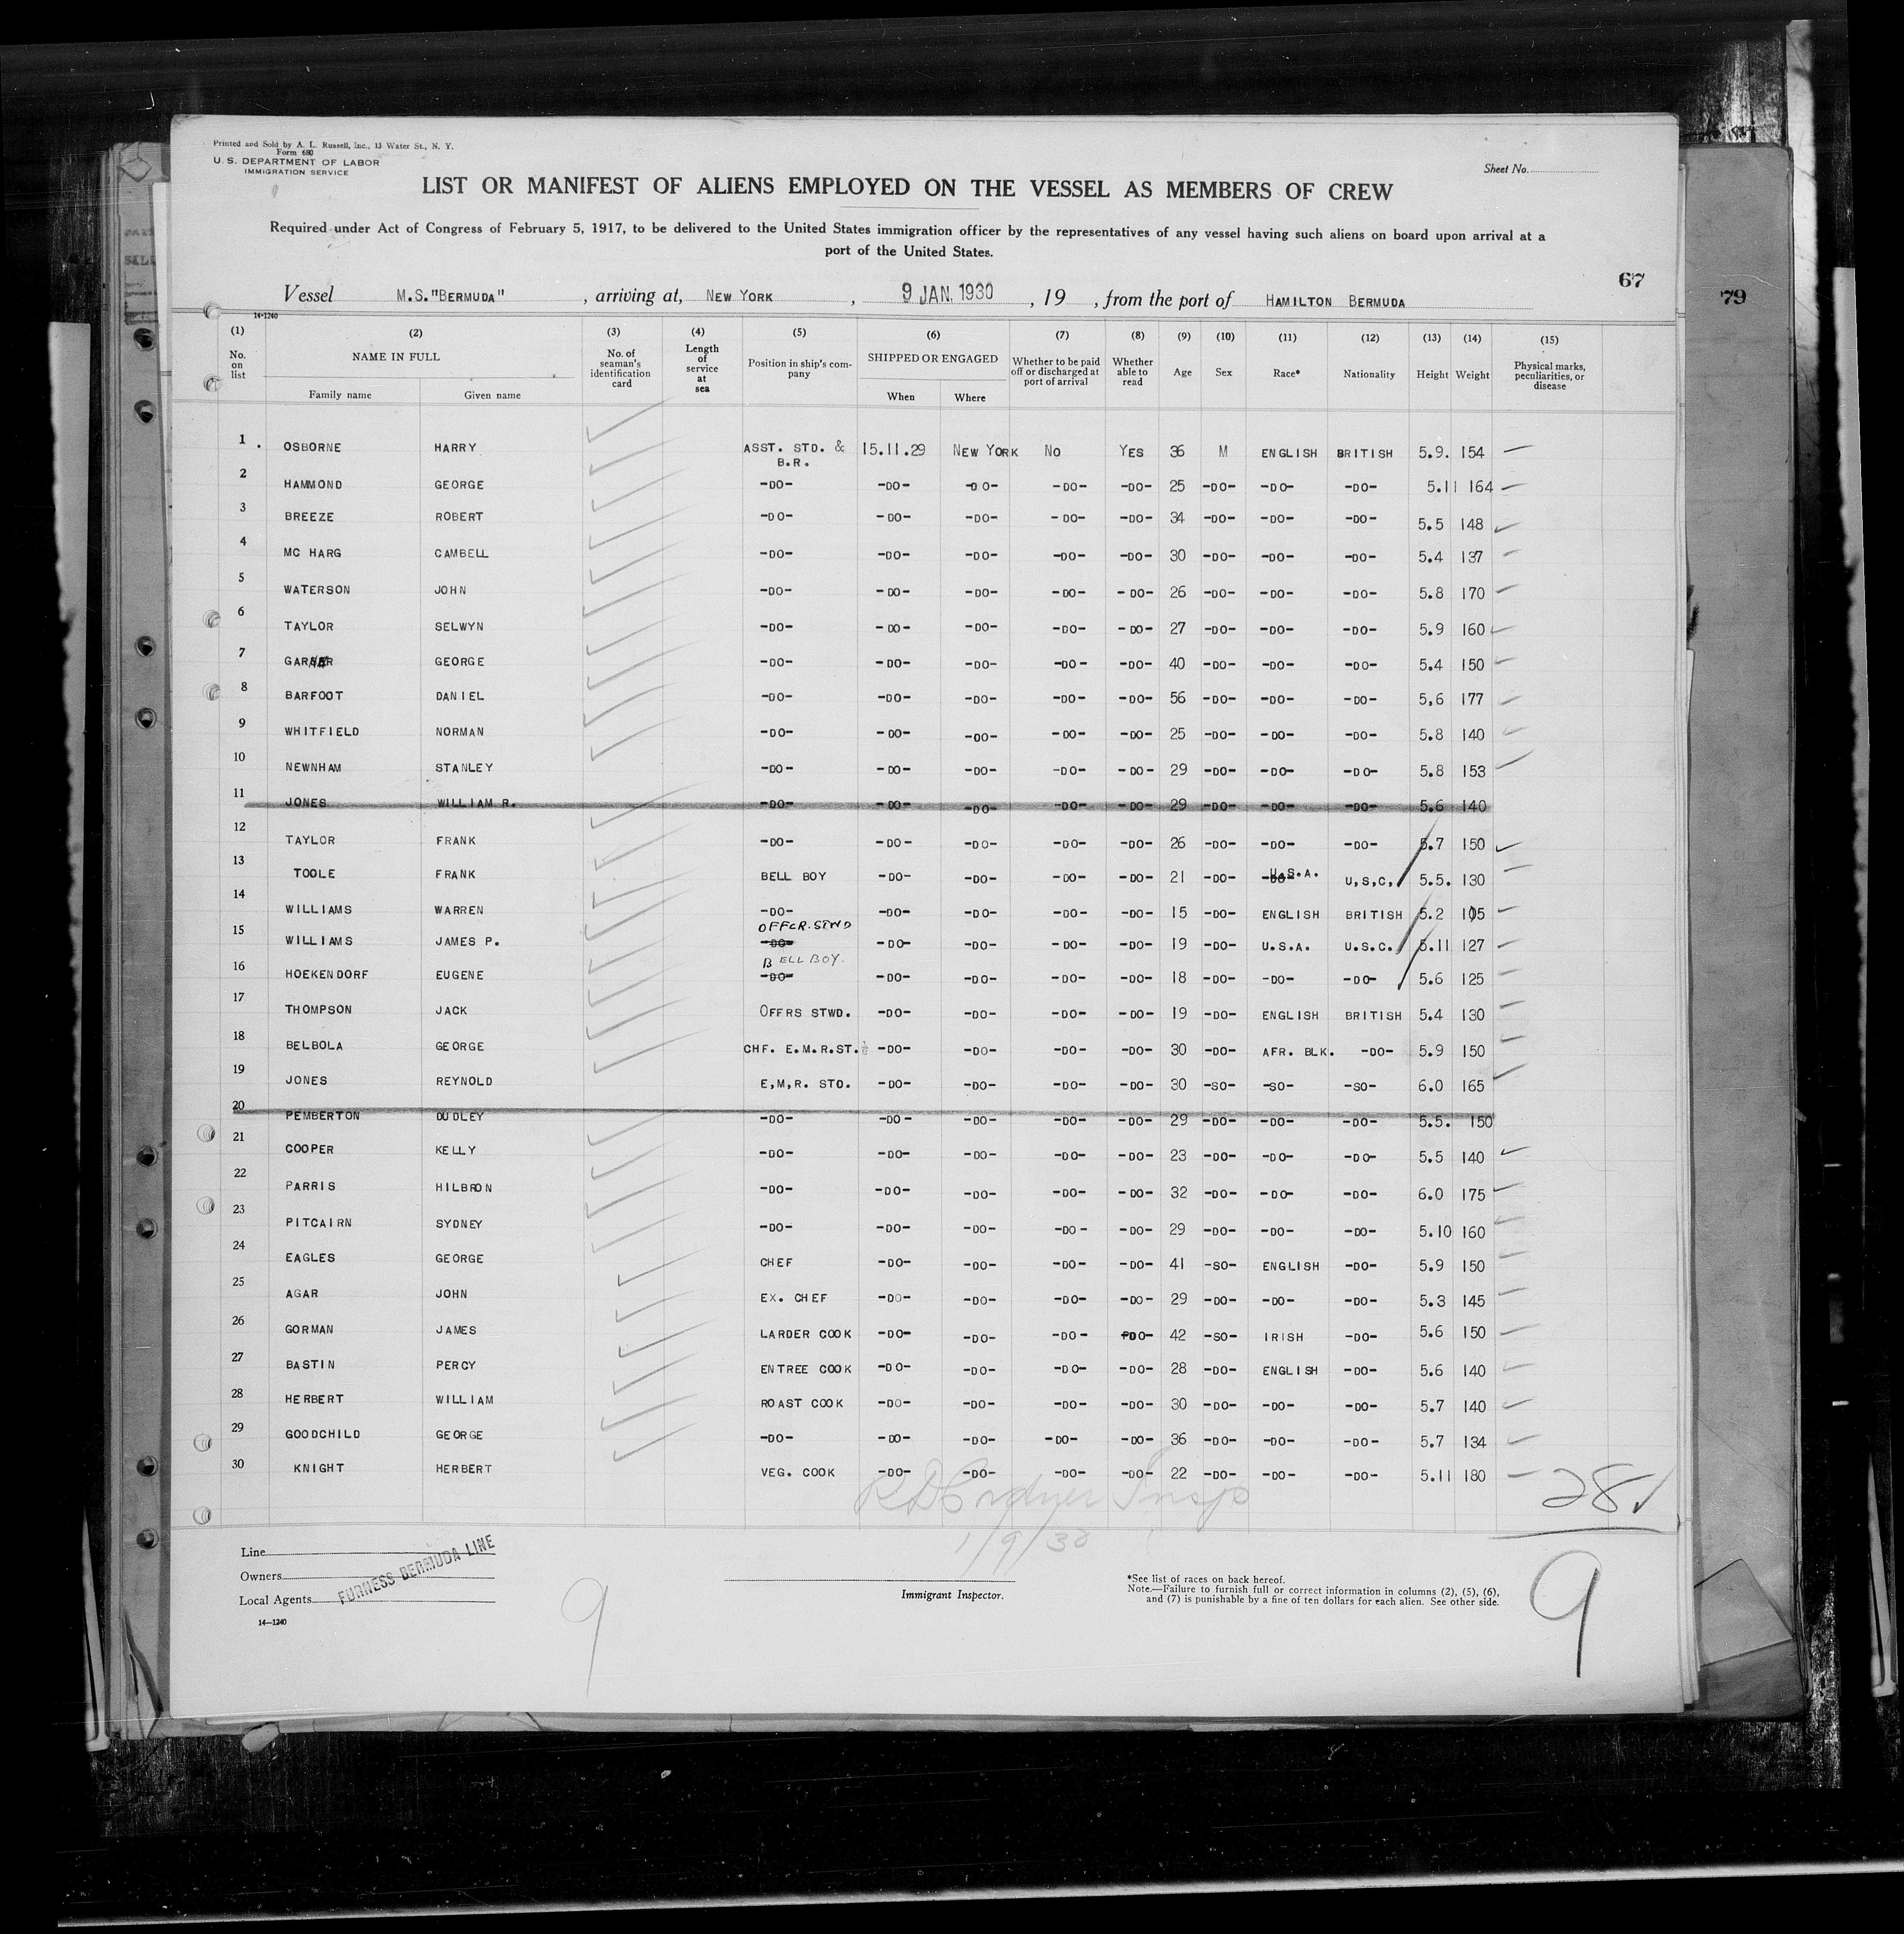 Printed and Sold by A. L. Russell, Inc., 13 Water St., N. Y.
Form 680
U. S. DEPARTMENT OF LABOR
IMMIGRATION SERVICE
Sheet No.
LIST OR MANIFEST OF ALIENS EMPLOYED ON THE VESSEL AS MEMBERS OF CREW
Required under Act of Congress of February 5, 1917, to be delivered to the United States immigration officer by the representatives of any vessel having such aliens on board upon arrival at a
port of the United States.
67
79
Vessel M.S."BERMUDA" , arriving at, NEW YORK , 9 JAN. 1930 , 19 , from the port of HAMILTON BERMUDA
14-1240
(1) (2) (3) (4) (5) (6) (7) (8) (9) (10) (11) (12) (13) (14) (15)
No. on list NAME IN FULL Family name Given name No. of seaman's identification card Length of service at sea Position in ship's company SHIPPED OR ENGAGED When Where Whether to be paid off or discharged at port of arrival Whether able to read Age Sex Race* Nationality Height Weight Physical marks, peculiarities, or disease
1 OSBORNE HARRY ASST. STD. & B.R. 15.11.29 NEW YORK NO YES 36 M ENGLISH BRITISH 5.9. 154
2 HAMMOND GEORGE -DO- -DO- -DO- -DO- -DO- 25 -DO- -DO- -DO- 5.11 164
3 BREEZE ROBERT -DO- -DO- -DO- -DO- -DO- 34 -DO- -DO- -DO- 5.5 148
4 MC HARG CAMBELL -DO- -DO- -DO- -DO- -DO- 30 -DO- -DO- -DO- 5.4 137
5 WATERSON JOHN -DO- -DO- -DO- -DO- -DO- 26 -DO- -DO- -DO- 5.8 170
6 TAYLOR SELWYN -DO- -DO- -DO- -DO- -DO- 27 -DO- -DO- -DO- 5.9 160
7 GEORGE -DO- -DO- -DO- -DO- -DO- 40 -DO- -DO- -DO- 5.4 150
8 BARFOOT DANIEL -DO- -DO- -DO- -DO- -DO- 56 -DO- -DO- -DO- 5,6 177
9 WHITFIELD NORMAN -DO- -DO- -DO- -DO- -DO- 25 -DO- -DO- -DO- 5.8 140
10 NEWNHAM STANLEY -DO- -DO- -DO- -DO- -DO- 29 -DO- -DO- -DO- 5.8 153
11 JONES WILLIAM R. -DO- -DO- -DO- -DO- -DO- 29 -DO- -DO- -DO- 5.6 140
12 TAYLOR FRANK -DO- -DO- -DO- -DO- -DO- 26 -DO- -DO- -DO- 5.7 150
13 TOOLE FRANK BELL BOY -DO- -DO- -DO- -DO- 21 -DO- -DO- U.S.A. U,S,C, 5.5. 130
14 WILLIAMS WARREN -DO- -DO- -DO- -DO- -DO- 15 -DO- ENGLISH BRITISH 5.2 105
15 WILLIAMS JAMES P. OFFCR. STWD -DO- -DO- -DO- -DO- -DO- 19 -DO- U.S.A. U.S.C. 5.11 127
16 HOEKENDORF EUGENE BELL BOY. -DO- -DO- -DO- -DO- -DO- 18 -DO- -DO- -DO- 5.6 125
17 THOMPSON JACK OFFRS STWD. -DO- -DO- -DO- -DO- 19 -DO- ENGLISH BRITISH 5.4 130
18 BELBOLA GEORGE CHF. E.M.R.ST. -DO- -DO- -DO- -DO- 30 -DO- AFR. BLK. -DO- 5.9 150
19 JONES REYNOLD E,M,R. STD. -DO- -DO- -DO- -DO- 30 -SO- -SO- -SO- 6.0 165
20 PEMBERTON DUDLEY -DO- -DO- -DO- -DO- -DO- 29 -DO- -DO- -DO- 5.5. 150
21 COOPER KELLY -DO- -DO- -DO- -DO- -DO- 23 -DO- -DO- -DO- 5.5 140
22 PARRIS HILBRON -DO- -DO- -DO- -DO- -DO- 32 -DO- -DO- -DO- 6.0 175
23 PITCAIRN SYDNEY -DO- -DO- -DO- -DO- -DO- 29 -DO- -DO- -DO- 5.10 160
24 EAGLES GEORGE CHEF -DO- -DO- -DO- -DO- 41 -SO- ENGLISH -DO- 5.9 150
25 AGAR JOHN EX. CHEF -DO- -DO- -DO- -DO- 29 -DO- -DO- -DO- 5.3 145
26 GORMAN JAMES LARDER COOK -DO- -DO- -DO- -DO- 42 -SO- IRISH -DO- 5.6 150
27 BASTIN PERCY ENTREE COOK -DO- -DO- -DO- -DO- 28 -DO- ENGLISH -DO- 5.6 140
28 HERBERT WILLIAM ROAST COOK -DO- -DO- -DO- -DO- 30 -DO- -DO- -DO- 5.7 140
29 GOODCHILD GEORGE -DO- -DO- -DO- -DO- -DO- 36 -DO- -DO- -DO- 5.7 134
30 KNIGHT HERBERT VEG. COOK -DO- -DO- -DO- -DO- 22 -DO- -DO- -DO- 5.11 180
28
Insp
1/9/30
Line
Owners
Local Agents
FURNESS BERMUDA LINE
14-1240
9
Immigrant Inspector.
*See list of races on back hereof.
Note.—Failure to furnish full or correct information in columns (2), (5), (6),
and (7) is punishable by a fine of ten dollars for each alien. See other side.
9